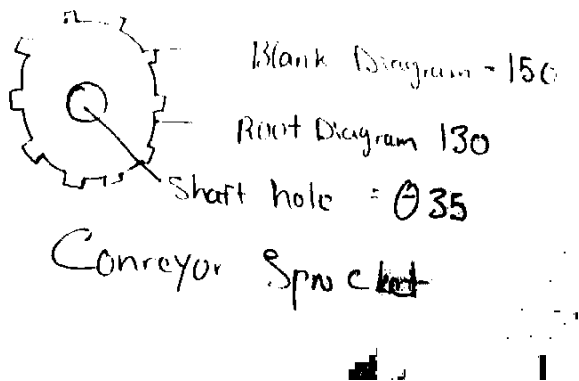 Blank Diagram - 150
Root Diagram 130
Shaft hole = Ө 35
Conveyor Sprocket